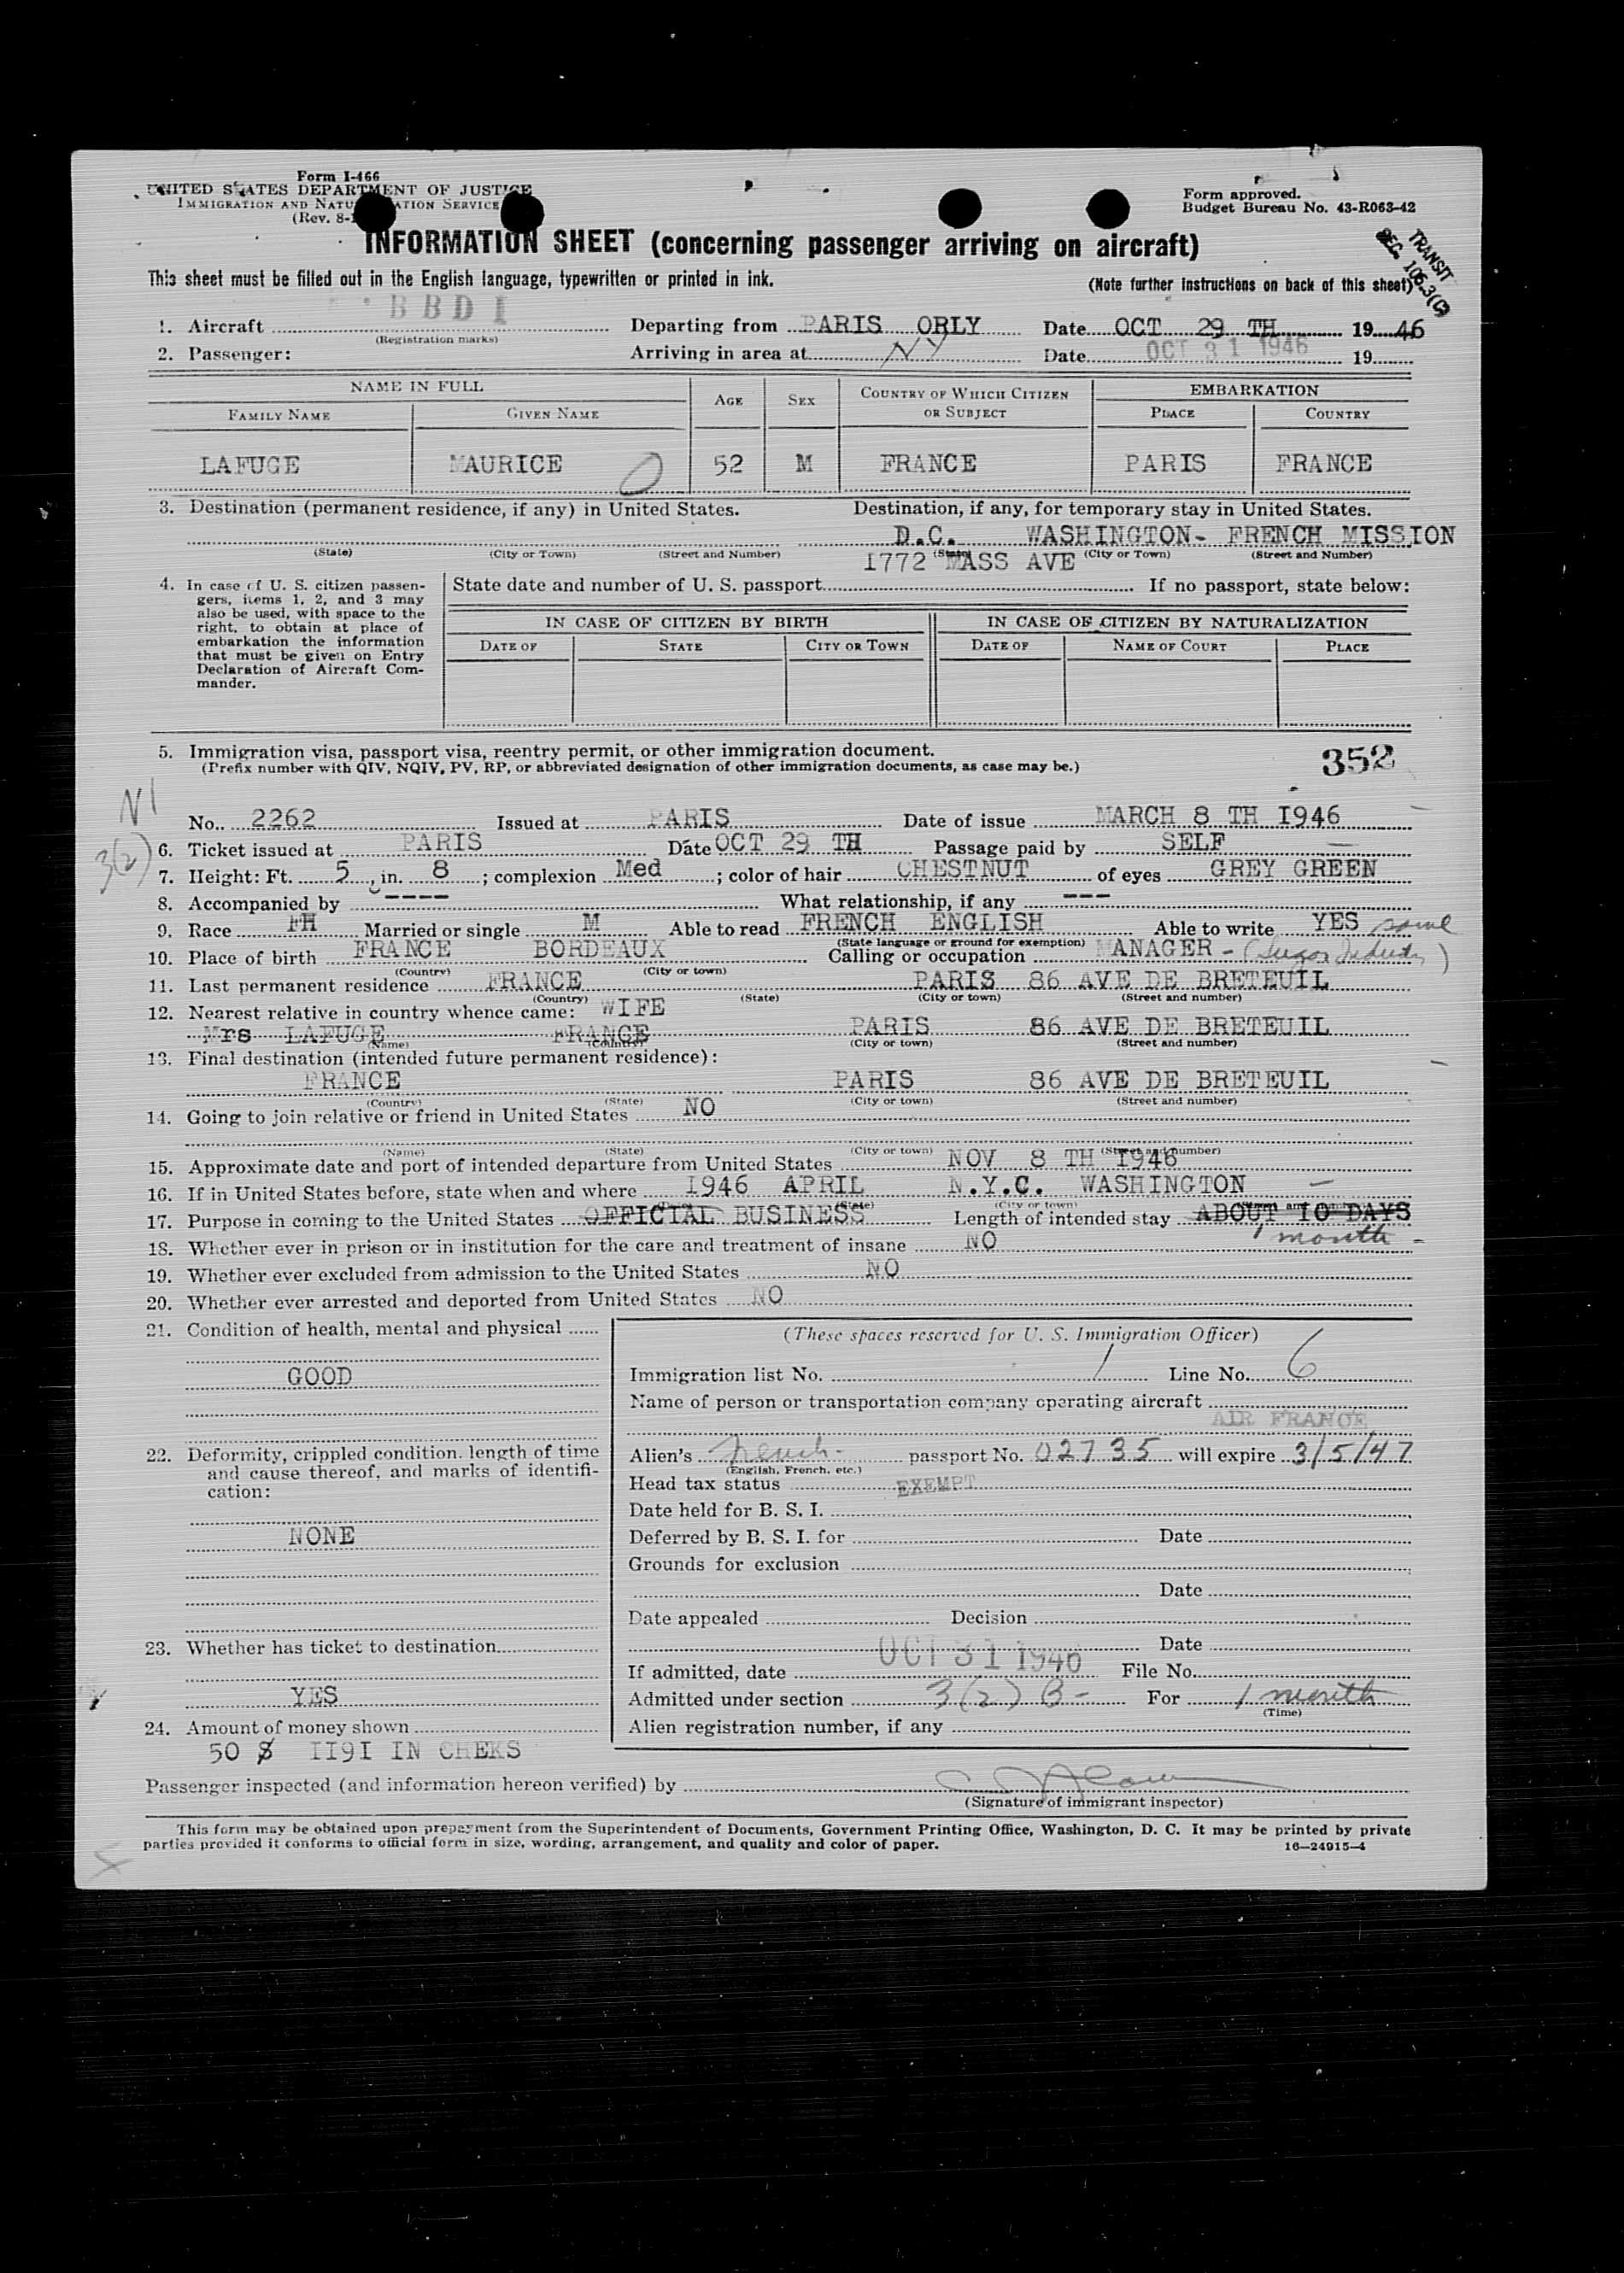 Form I-466
UNITED STATES DEPARTMENT OF JUSTICE
IMMIGRATION AND NATU ATION SERVICE
(Rev. 8-
Form approved.
Budget Bureau No. 43-R063-42
INFORMATION SHEET (concerning passenger arriving on aircraft)
TRANSIT
SEC. 105.3(C)
This sheet must be filled out in the English language, typewritten or printed in ink.
(Note further instructions on back of this sheet)
1. Aircraft BBDI Departing from PARIS ORLY Date OCT 29 TH 1946
(Registration marks)
2. Passenger: Arriving in area at NY Date OCT 31 1946 19
NAME IN FULL AGE SEX COUNTRY OF WHICH CITIZEN OR SUBJECT EMBARKATION
FAMILY NAME GIVEN NAME PLACE COUNTRY
LAFUGE MAURICE 52 M FRANCE PARIS FRANCE
3. Destination (permanent residence, if any) in United States. Destination, if any, for temporary stay in United States.
D.C. WASHINGTON- FRENCH MISSION
(State) (City or Town) (Street and Number) (State) (City or Town) (Street and Number)
1772 MASS AVE
4. In case of U. S. citizen passen-
gers, items 1, 2, and 3 may
also be used, with space to the
right, to obtain at place of
embarkation the information
that must be given on Entry
Declaration of Aircraft Com-
mander.
State date and number of U. S. passport If no passport, state below:
IN CASE OF CITIZEN BY BIRTH IN CASE OF CITIZEN BY NATURALIZATION
DATE OF STATE CITY OR TOWN DATE OF NAME OF COURT PLACE
5. Immigration visa, passport visa, reentry permit, or other immigration document.
(Prefix number with QIV, NQIV, PV, RP, or abbreviated designation of other immigration documents, as case may be.)
352
NI
No. 2262 Issued at PARIS Date of issue MARCH 8 TH I946
3(2)
6. Ticket issued at PARIS Date OCT 29 TH Passage paid by SELF
7. Height: Ft. 5, in. 8; complexion Med; color of hair CHESTNUT of eyes GREY GREEN
8. Accompanied by ---- What relationship, if any ---
9. Race FH Married or single M Able to read FRENCH ENGLISH Able to write YES same
(State language or ground for exemption)
10. Place of birth FRANCE BORDEAUX Calling or occupation MANAGER - (Sugar Industry)
(Country) (City or town)
11. Last permanent residence FRANCE PARIS 86 AVE DE BRETEUIL
(Country) (State) (City or town) (Street and number)
12. Nearest relative in country whence came: WIFE
Mrs LAFUGE FRANCE PARIS 86 AVE DE BRETEUIL
(Name) (Country) (City or town) (Street and number)
13. Final destination (intended future permanent residence):
FRANCE PARIS 86 AVE DE BRETEUIL
(Country) (State) (City or town) (Street and number)
14. Going to join relative or friend in United States NO
(Name) (State) (City or town) (Street and number)
15. Approximate date and port of intended departure from United States NOV 8 TH I946
16. If in United States before, state when and where I946 APRIL N.Y.C. WASHINGTON
(State) (City or town)
17. Purpose in coming to the United States OFFICIAL BUSINESS Length of intended stay ABOUT IO DAYS
1 month -
18. Whether ever in prison or in institution for the care and treatment of insane NO
19. Whether ever excluded from admission to the United States NO
20. Whether ever arrested and deported from United States NO
21. Condition of health, mental and physical
GOOD
22. Deformity, crippled condition, length of time
and cause thereof, and marks of identifi-
cation:
NONE
23. Whether has ticket to destination
YES
24. Amount of money shown
50 $ II9I IN CHEKS
(These spaces reserved for U. S. Immigration Officer)
Immigration list No. 1 Line No. 6
Name of person or transportation company operating aircraft
AIR FRANCE
Alien's French passport No. 02735 will expire 3/5/47
(English, French, etc.)
Head tax status EXEMPT
Date held for B. S. I.
Deferred by B. S. I. for Date
Grounds for exclusion
Date
Date appealed Decision
Date
If admitted, date OCT 31 1946 File No.
Admitted under section 3(2) B- For 1 month
(Time)
Alien registration number, if any
Passenger inspected (and information hereon verified) by
(Signature of immigrant inspector)
This form may be obtained upon prepayment from the Superintendent of Documents, Government Printing Office, Washington, D. C. It may be printed by private
parties provided it conforms to official form in size, wording, arrangement, and quality and color of paper.
16—24915-4